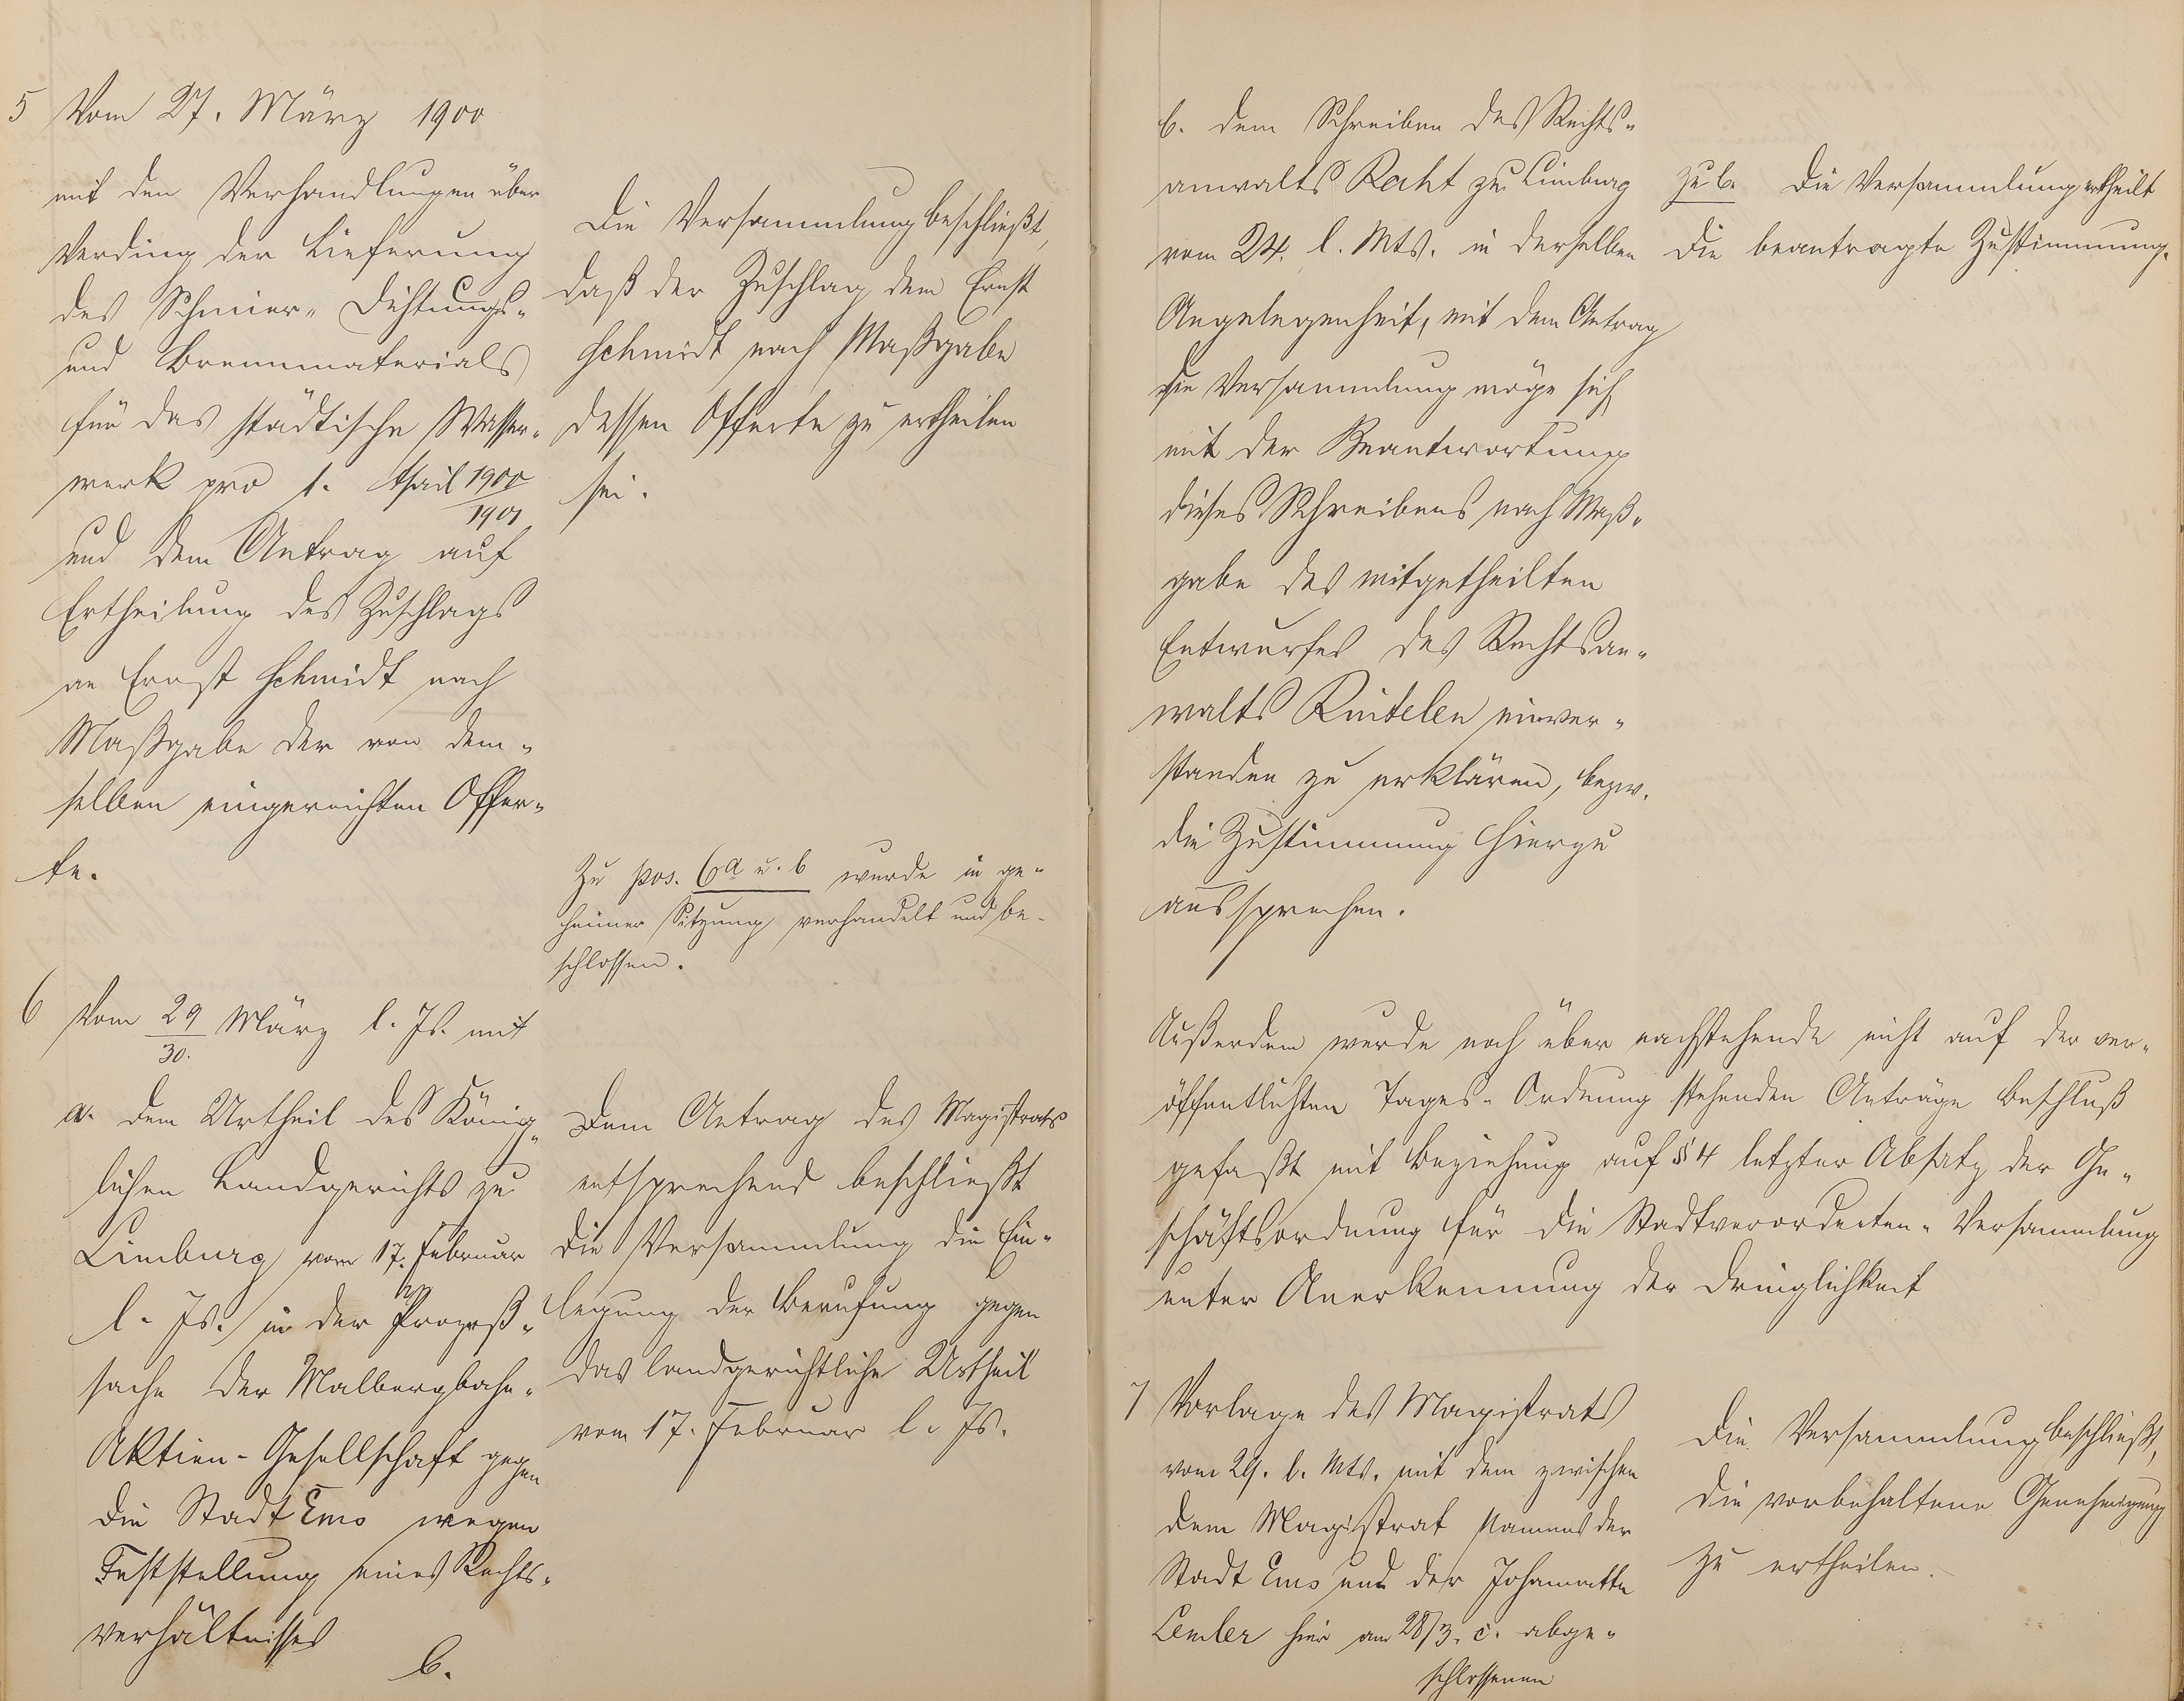 5 Vom 27. März 1900
mit den Verhandlungen über
Verding der Lieferung
des Schmier- Dichtungs-
und Brennmaterials
für das städtische Wasser-
werk pro 1. April 1900/1901
und dem Antrag auf
Ertheilung des Zuschlags
an Ernst Schmidt nach
Maßgabe der von dem-
selben eingereichten Offer-
te.
Die Versammlung beschließt,
daß der Zuschlag dem Ernst
Schmidt nach Maßgabe
dessen Offerte zu ertheilen
sei.
Zu pos. 6 a u. b wurde in ge-
heimer Sitzung verhandelt und be-
schlossen.
6 Vom 29/30. März l. Js. mit
a. dem Urtheil des König-
lichen Landgerichts zu
Limburg vom 17. Februar
l. Js. in der Prozeß-
sache der Malbergbahn-
Aktien-Gesellschaft gegen
die Stadt Ems wegen
Feststellung eines Rechts-
verhältnisses
b.
Dem Antrag des Magistrats
entsprechend beschließt
die Versammlung die Ein-
legung der Berufung gegen
das landgerichtliche Urtheil
vom 17. Februar l. Js.
b. dem Schreiben des Rechts-
anwalts Raht zu Limburg
vom 24. l. Mts. in derselben
Angelegenheit, mit dem Antrag
die Versammlung möge sich
mit der Beantwortung
dieses Schreibens nach Maß-
gabe des mitgetheilten
Entwurfes des Rechtsan-
walts Rintelen einver-
standen zu erklären, bezw.
die Zustimmung hierzu
aussprechen.
zu b. Die Versammlung ertheilt
die beantragte Zustimmung.
Außerdem wurde noch über nachstehende nicht auf der ver-
öffentlichten Tages-Ordnung stehenden Anträge Beschluß
gefaßt mit Beziehung auf § 4 letzter Absatz der Ge-
schäftsordnung für die Stadtverordneten-Versammlung
unter Anerkennung der Dringlichkeit
7 Vorlage des Magistrats
vom 29. l. Mts. mit dem zwischen
dem Magistrat Namens der
Stadt Ems und der Johannette
Lemler hier am 28/3. c. abge-
schlossenen
Die Versammlung beschließt,
die vorbehaltene Genehmigung
zu ertheilen.